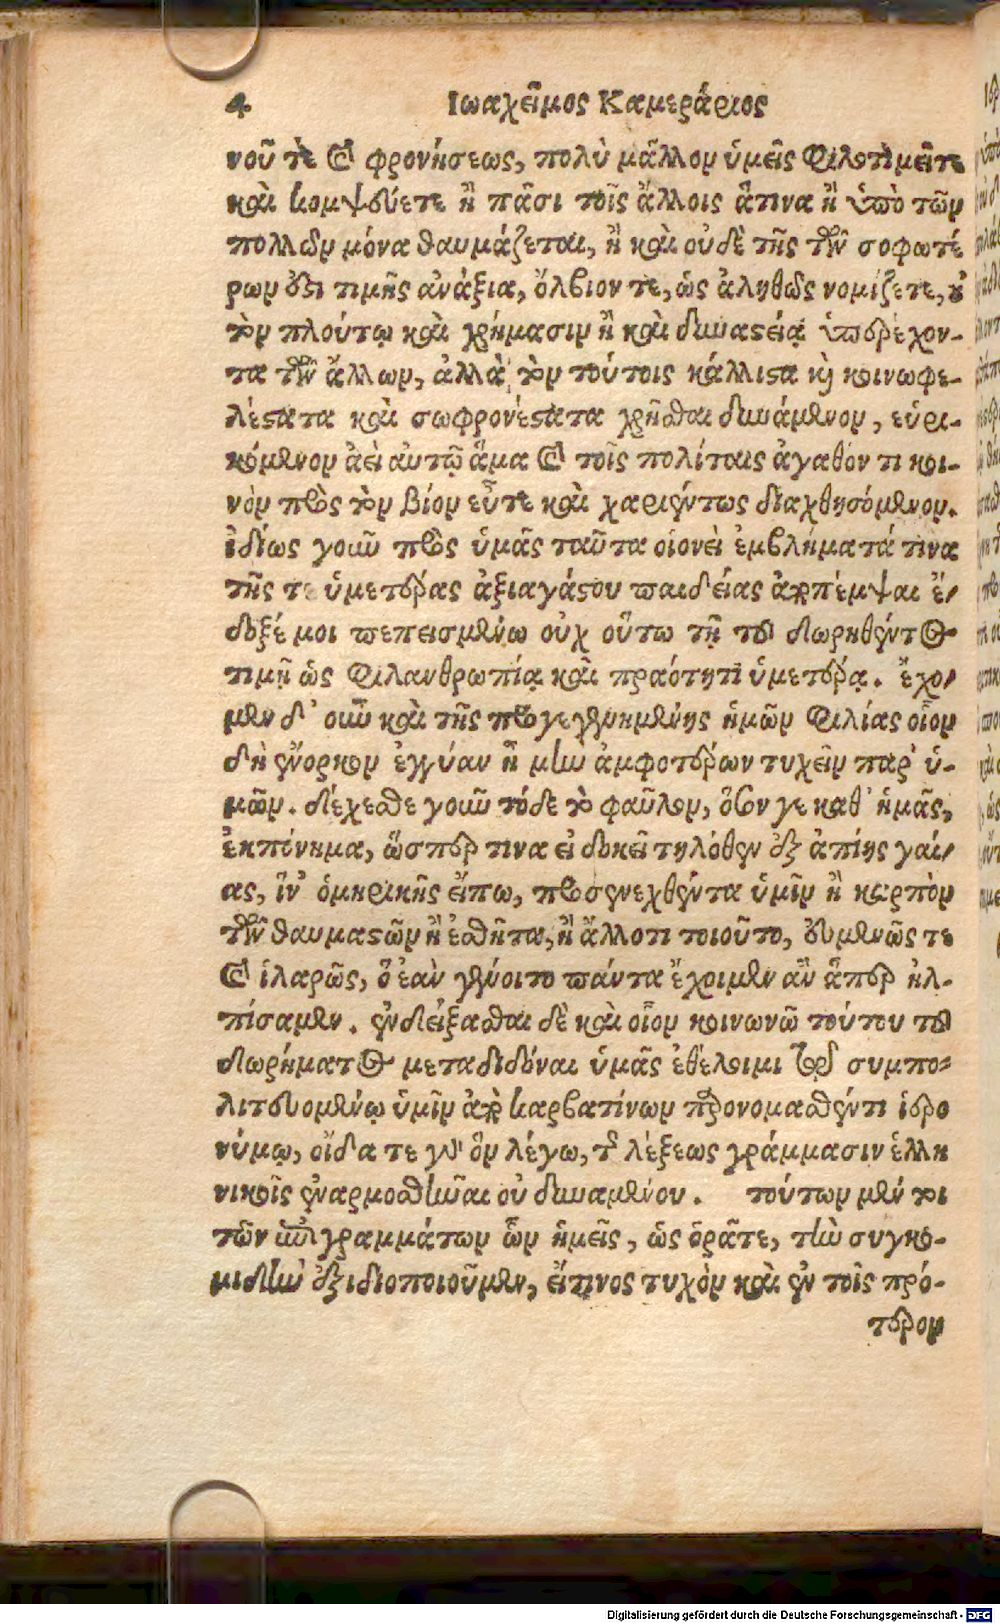 4 Ἰωαχεῖμος Καμεράριος
νοῦ τὲ καὶ φρονήσεως, πολὺ μᾶλλον ὑμεῖς φιλοτιμεῖτε
καὶ κομψεύετε ἢ πᾶσι τοῖς ἄλλοις ἅτινα ἢ ὑπὸ τῶν
πολλῶν μόνα θαυμάζεται, ἢ καὶ οὐδὲ τῆς τῶν σοφωτέ
ρων ἐστὶ τιμῆς ἀνάξια, ὄλβιον τε, ὡς ἀληθῶς νομίζετε, οὐ
τὸν πλούτῳ καὶ χρήμασιν ἢ καὶ δυναστείᾳ ὑπερέχον-
τα τῶν ἄλλων, ἀλλὰ τὸν τούτοις κάλλιστα καὶ κοινωφε-
λέστατα καὶ σωφρονέστατα χρῆσθαι δυνάμενον, εὑρι-
κόμενον ἀεὶ αὐτῷ ἅμα καὶ τοῖς πολίταις ἀγαθόν τι κοι-
νὸν πρὸς τὸν βίον εὖτε καὶ χαριέντως διαχθησόμενον.
ἰδίως γοιῦ πρὸς ὑμᾶς ταῦτα οἱονεὶ ἐμβλήματά τινα
τῆς τ ὑμετέρας ἀξιαγάστου παιδείας ἀποπέμψαι ἔ-
δοξέ μοι πεπεισμένῳ οὐχ οὕτω τῇ τοῦ δωρηθέντος
τιμῇ ὡς φιλανθρωπίᾳ καὶ πραότητι ὑμετέρᾳ. ἔχο-
μεν δ' οὖν καὶ τῆς προγεγενημένης ἡμῶν φιλίας οἷον
δὴ ἔνορκον ἐγγύαν ἦ μὴν ἀμφοτέρων τυχεῖν παρ' ὑ-
μῶν. δέχεσθε γοῦν τόδε τὸ φαῦλον, ὅσον γε καθ' ἡμᾶς,
ἐκπόνημα, ὥσπερ τινα εἰ δοκεῖ τηλόθεν ἐξ ἀπίης γαί-
ας, ἵν' ὁμηρικῆς εἴπω, προσενεχθέντα ὑμῖν ἢ καρπὸν
τῶν θαυμαστῶν ἢ ἐσθῆτα, ἢ ἄλλο τι τοιοῦτο, εὐμενῶς τε
καὶ ἱλαρῶς, ὃ ἐὰν γένοιτο πάντα ἔχοιμεν ἂν ἅπερ ἠλ-
πίσαμεν. ἐνδείξασθαι δὲ καὶ οἷον κοινωνῷ τούτου τοῦ
δωρήματος μεταδιδόναι ὑμᾶς ἐθέλοιμι τῷ συμπο-
λιτευομένῳ ὑμῖν ἀπὸ καρβατίνων παρονομασθέντι ἱερο
νύμῳ, οἴδατε γὰρ ὃν λέγω, τῆς λέξεως γράμμασιν ἑλλη
νικοῖς ἐναρμοσθῆναι οὐ δυναμένου. τούτων μέν τοι
τῶν ἐπιγραμμάτων ὧν ἡμεῖς, ὡς ὁρᾶτε, τὴν συγκο-
μιδὴν ἐξιδιοποιοῦμεν, εἴ τινος τυχὸν καὶ ἐν τοῖς πρό-
τερον
Digitalisierung gefördert durch die Deutsche Forschungsgemeinschaft - DFG